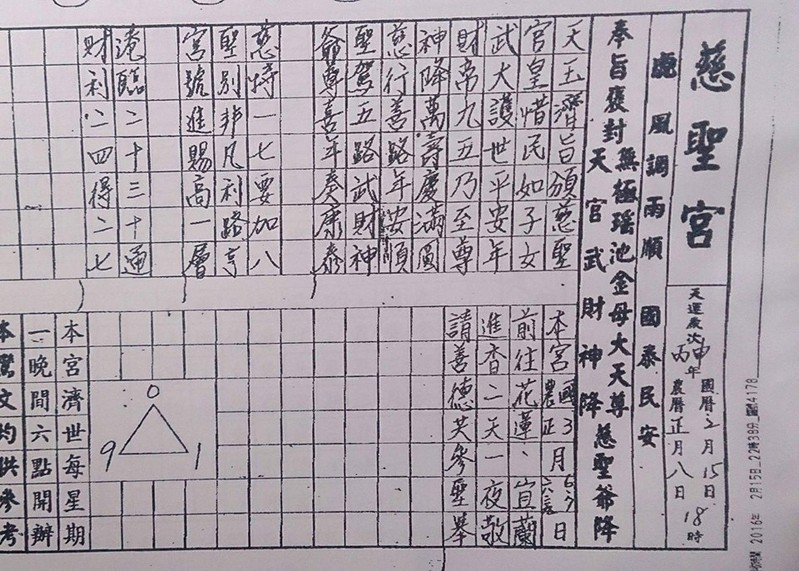 慈聖宮
天運歲次丙申年
國曆2月15日18時
農曆正月八日
風調雨順 國泰民安
奉旨褒封無極瑤池金母大天尊
慈聖爺降
天官武財神降
天玉濟旨頒慈聖
官皇惜民如子女
武大護世平安年
財帝九五乃至尊
神降萬壽慶滿圓
慈行善路年安順
聖駕五路武財神
爺尊喜年奏康泰
慈特一七要加八
聖別非凡利路亨
宮號進賜高一層
臨二十三十通
財利二四得二七
本宮國農3正月日
前往花蓮、宜蘭
進香二天一夜敬
請善德共參聖舉
0
9 1
本宮濟世每星期
一晚間六點開辦
本鸞文均供參考
2016年 2月15日_22時38分_ 4178